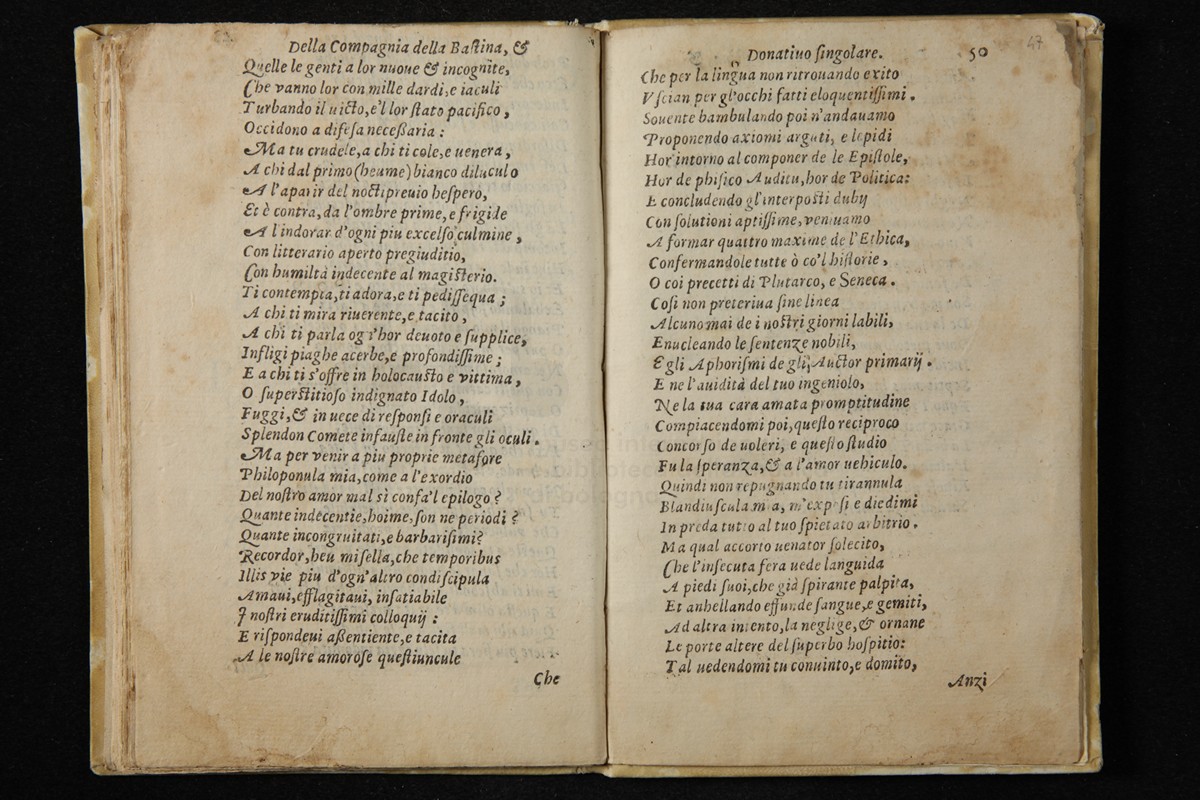 Della Compagnia della Baſtina, &
Quelle le genti a lor nuoue & incognite,
Che vanno lor con mille dardi, e iaculi
Turbando il uicto, e'l lor ſtato pacifico,
Occidono a difeſa neceßaria:
Ma tu crudele, a chi ti cole, e uenera,
A chi dal primo (heume) bianco diluculo
A l'aparir del noctipreuio heſpero,
Et è contra, da l'ombre prime, e frigide
A l indorar d'ogni piu excelſo culmine,
Con litterario aperto pregiuditio,
Con humiltà indecente al magiſterio.
Ti contempla, ti adora, e ti pediſſequa;
A chi ti mira riuerente, e tacito,
A chi ti parla ogn'hor deuoto e ſupplice,
Infligi piaghe acerbe, e profondiſſime;
E a chi ti s'offre in holocauſto e vittima,
O ſuperſtitioſo indignato Idolo,
Fuggi, & in uece di reſponſi e oraculi
Splendon Comete infauſte in fronte gli oculi.
Ma per venir a piu proprie metafore
Philoponula mia, come a l'exordio
Del noſtro amor mal sì confa'l epilogo?
Quante indecentie, hoime, ſon ne periodi?
Quante incongruitati, e barbariſimi?
Recordor, heu miſella, che temporibus
Illis vie piu d'ogn'altro condiſcipula
Amaui, efflagitaui, inſatiabile
I noſtri eruditiſſimi colloquij:
E riſpondeui aßentiente, e tacita
A le noſtre amoroſe queſtiuncule
Che
Donatiuo ſingolare. 50
47
Che per la lingua non ritrouando exito
Vſcian per gl'occhi fatti eloquentiſſimi.
Souente bambulando poi n'andauamo
Proponendo axiomi arguti, e lepidi
Hor intorno al componer de le Epiſtole,
Hor de phiſico Auditu, hor de Politica:
E concludendo gl'interpoſti dubij
Con ſolutioni aptiſſime, veniuamo
A formar quattro maxime de l'Ethica,
Confermandole tutte ò co'l hiſtorie,
O coi precetti di Plutarco, e Seneca.
Coſi non preteriua ſine linea
Alcuno mai de i noſtri giorni labili,
Enucleando le ſentenze nobili,
E gli Aphoriſmi de gli Auctor primarij.
E ne l'auidità del tuo ingeniolo,
Ne la tua cara amata promptitudine
Compiacendomi poi, queſto reciproco
Concorſo de uoleri, e queſto ſtudio
Fu la ſperanza, & a l'amor uehiculo.
Quindi non repugnando tu tirannula
Blandiuſcula mia, m'expoſi e diedimi
In preda tutto al tuo ſpietato arbitrio.
Ma qual accorto uenator ſolecito,
Che l'inſecuta fera uede languida
A piedi ſuoi, che già ſpirante palpita,
Et anhellando effunde ſangue, e gemiti,
Ad altra intento, la neglige, & ornane
Le porte altere del ſuperbo hoſpitio:
Tal uedendomi tu conuinto, e domito,
Anzi